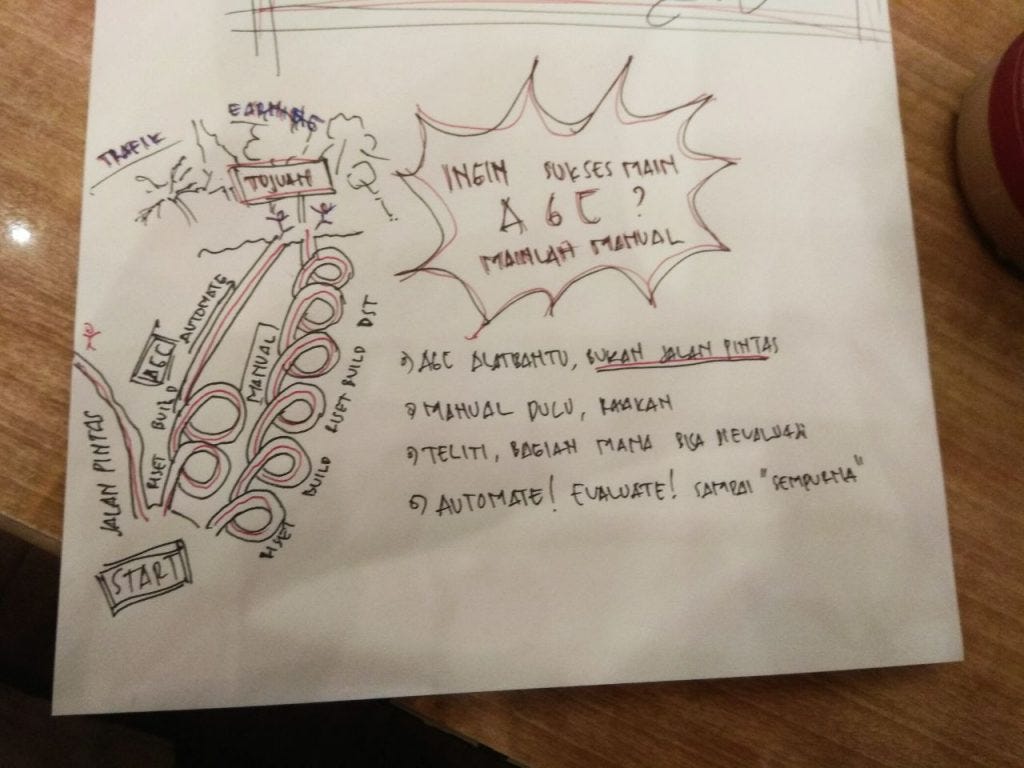 TRAFIK
EARNING
TUJUAN
INGIN SUKSES MAIN
AGC ?
MAINLAH MANUAL
AUTOMATE
AGC
BUILD
RISET
MANUAL
DST
BUILD
RISET
BUILD
RISET
JALAN PINTAS
START
AGC ALATBANTU, BUKAN JALAN PINTAS
MANUAL DULU, RASAKAN
TELITI, BAGIAN MANA BISA
AUTOMATE! EVALUATE! SAMPAI "SEMPURNA"